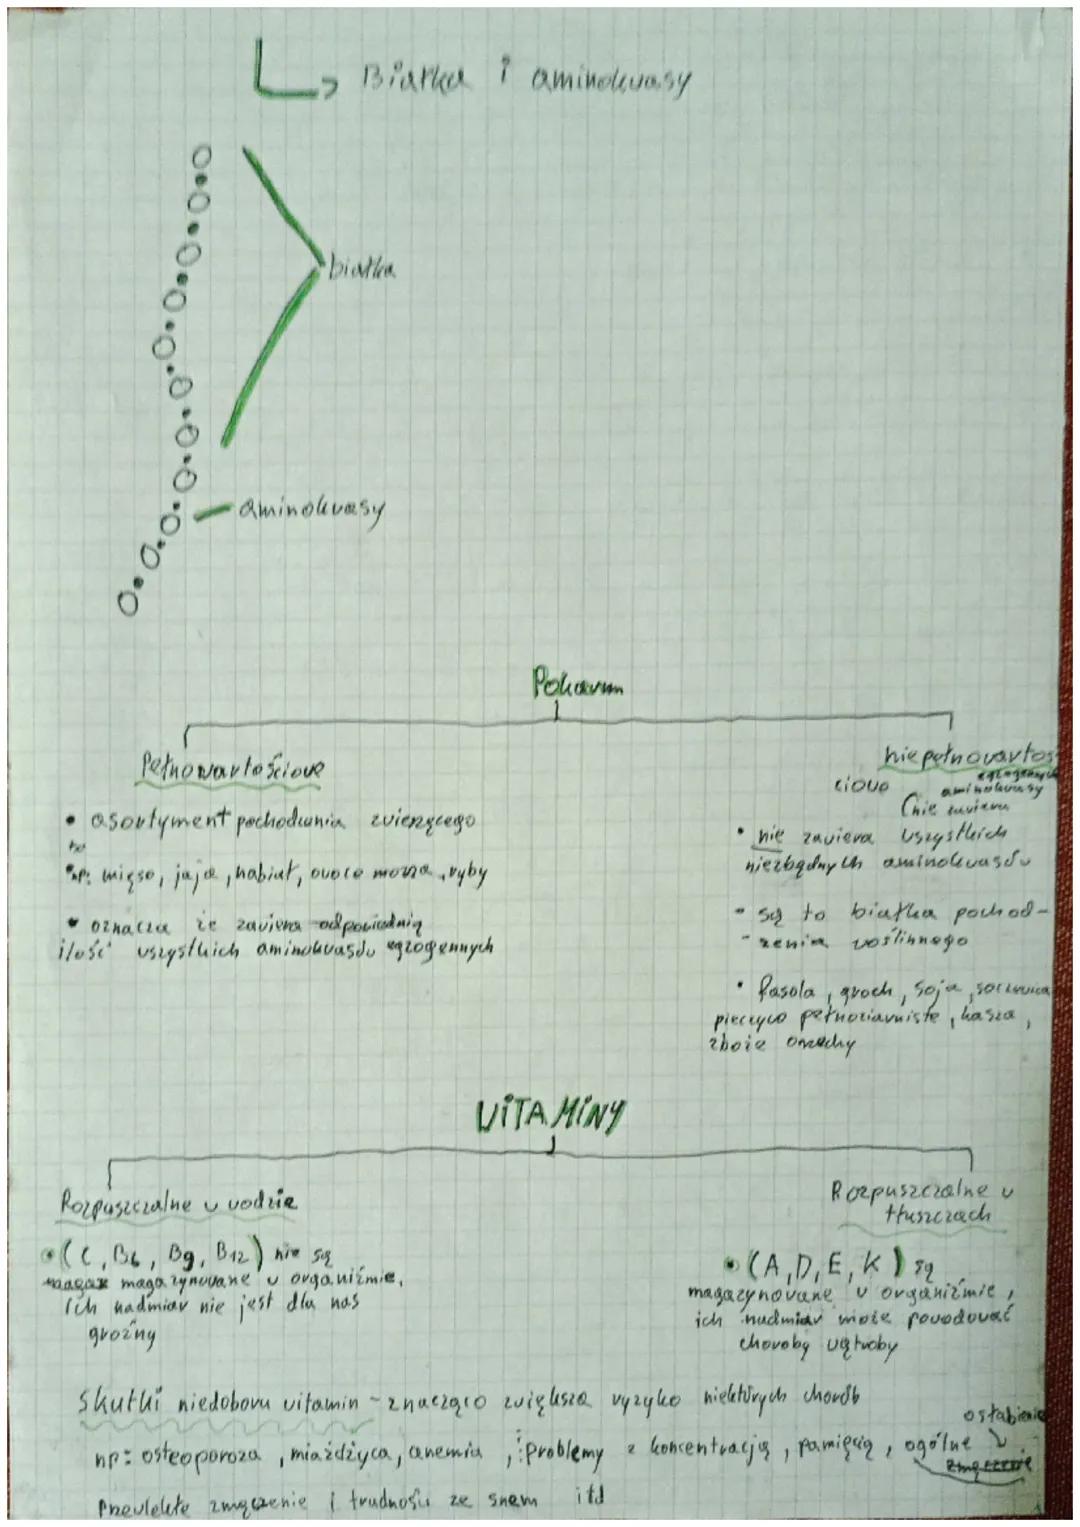 Białka i aminokwasy
białka
aminokwasy
Pokarm
Pełnowartościowe
• asortyment pochodzenia zwierzęcego
to
• np: mięso, jaja, nabiał, owoce morza, ryby
• oznacza że zawiera odpowiednią
ilość wszystkich aminokwasów egzogennych
niepełnowartoś
ciowe
egzogennych
aminokwasy
(nie zawiera
• nie zawiera wszystkich
niezbędnych aminokwasów
- są to białka pochod-
- zenia roślinnego
• fasola, groch, soja, soczewica
pieczywo pełnoziarniste, kasza,
zboże orzechy
WITAMINY
Rozpuszczalne w wodzie
• (C, B6, B9, B12) nie są
magazynowane w organiźmie,
Ich nadmiar nie jest dla nas
groźny
Rozpuszczalne w
tłuszczach
• (A, D, E, K) są
magazynowane w organiźmie,
ich nadmiar może powodować
choroby wątroby
Skutki niedoboru witamin - znacząco zwiększa ryzyko niektórych chorób
np: osteoporoza, miażdżyca, anemia, problemy z koncentracją, pamięcią, ogólne
osłabienie
zmęczenie
Przewlekłe zmęczenie i trudności ze snem itd